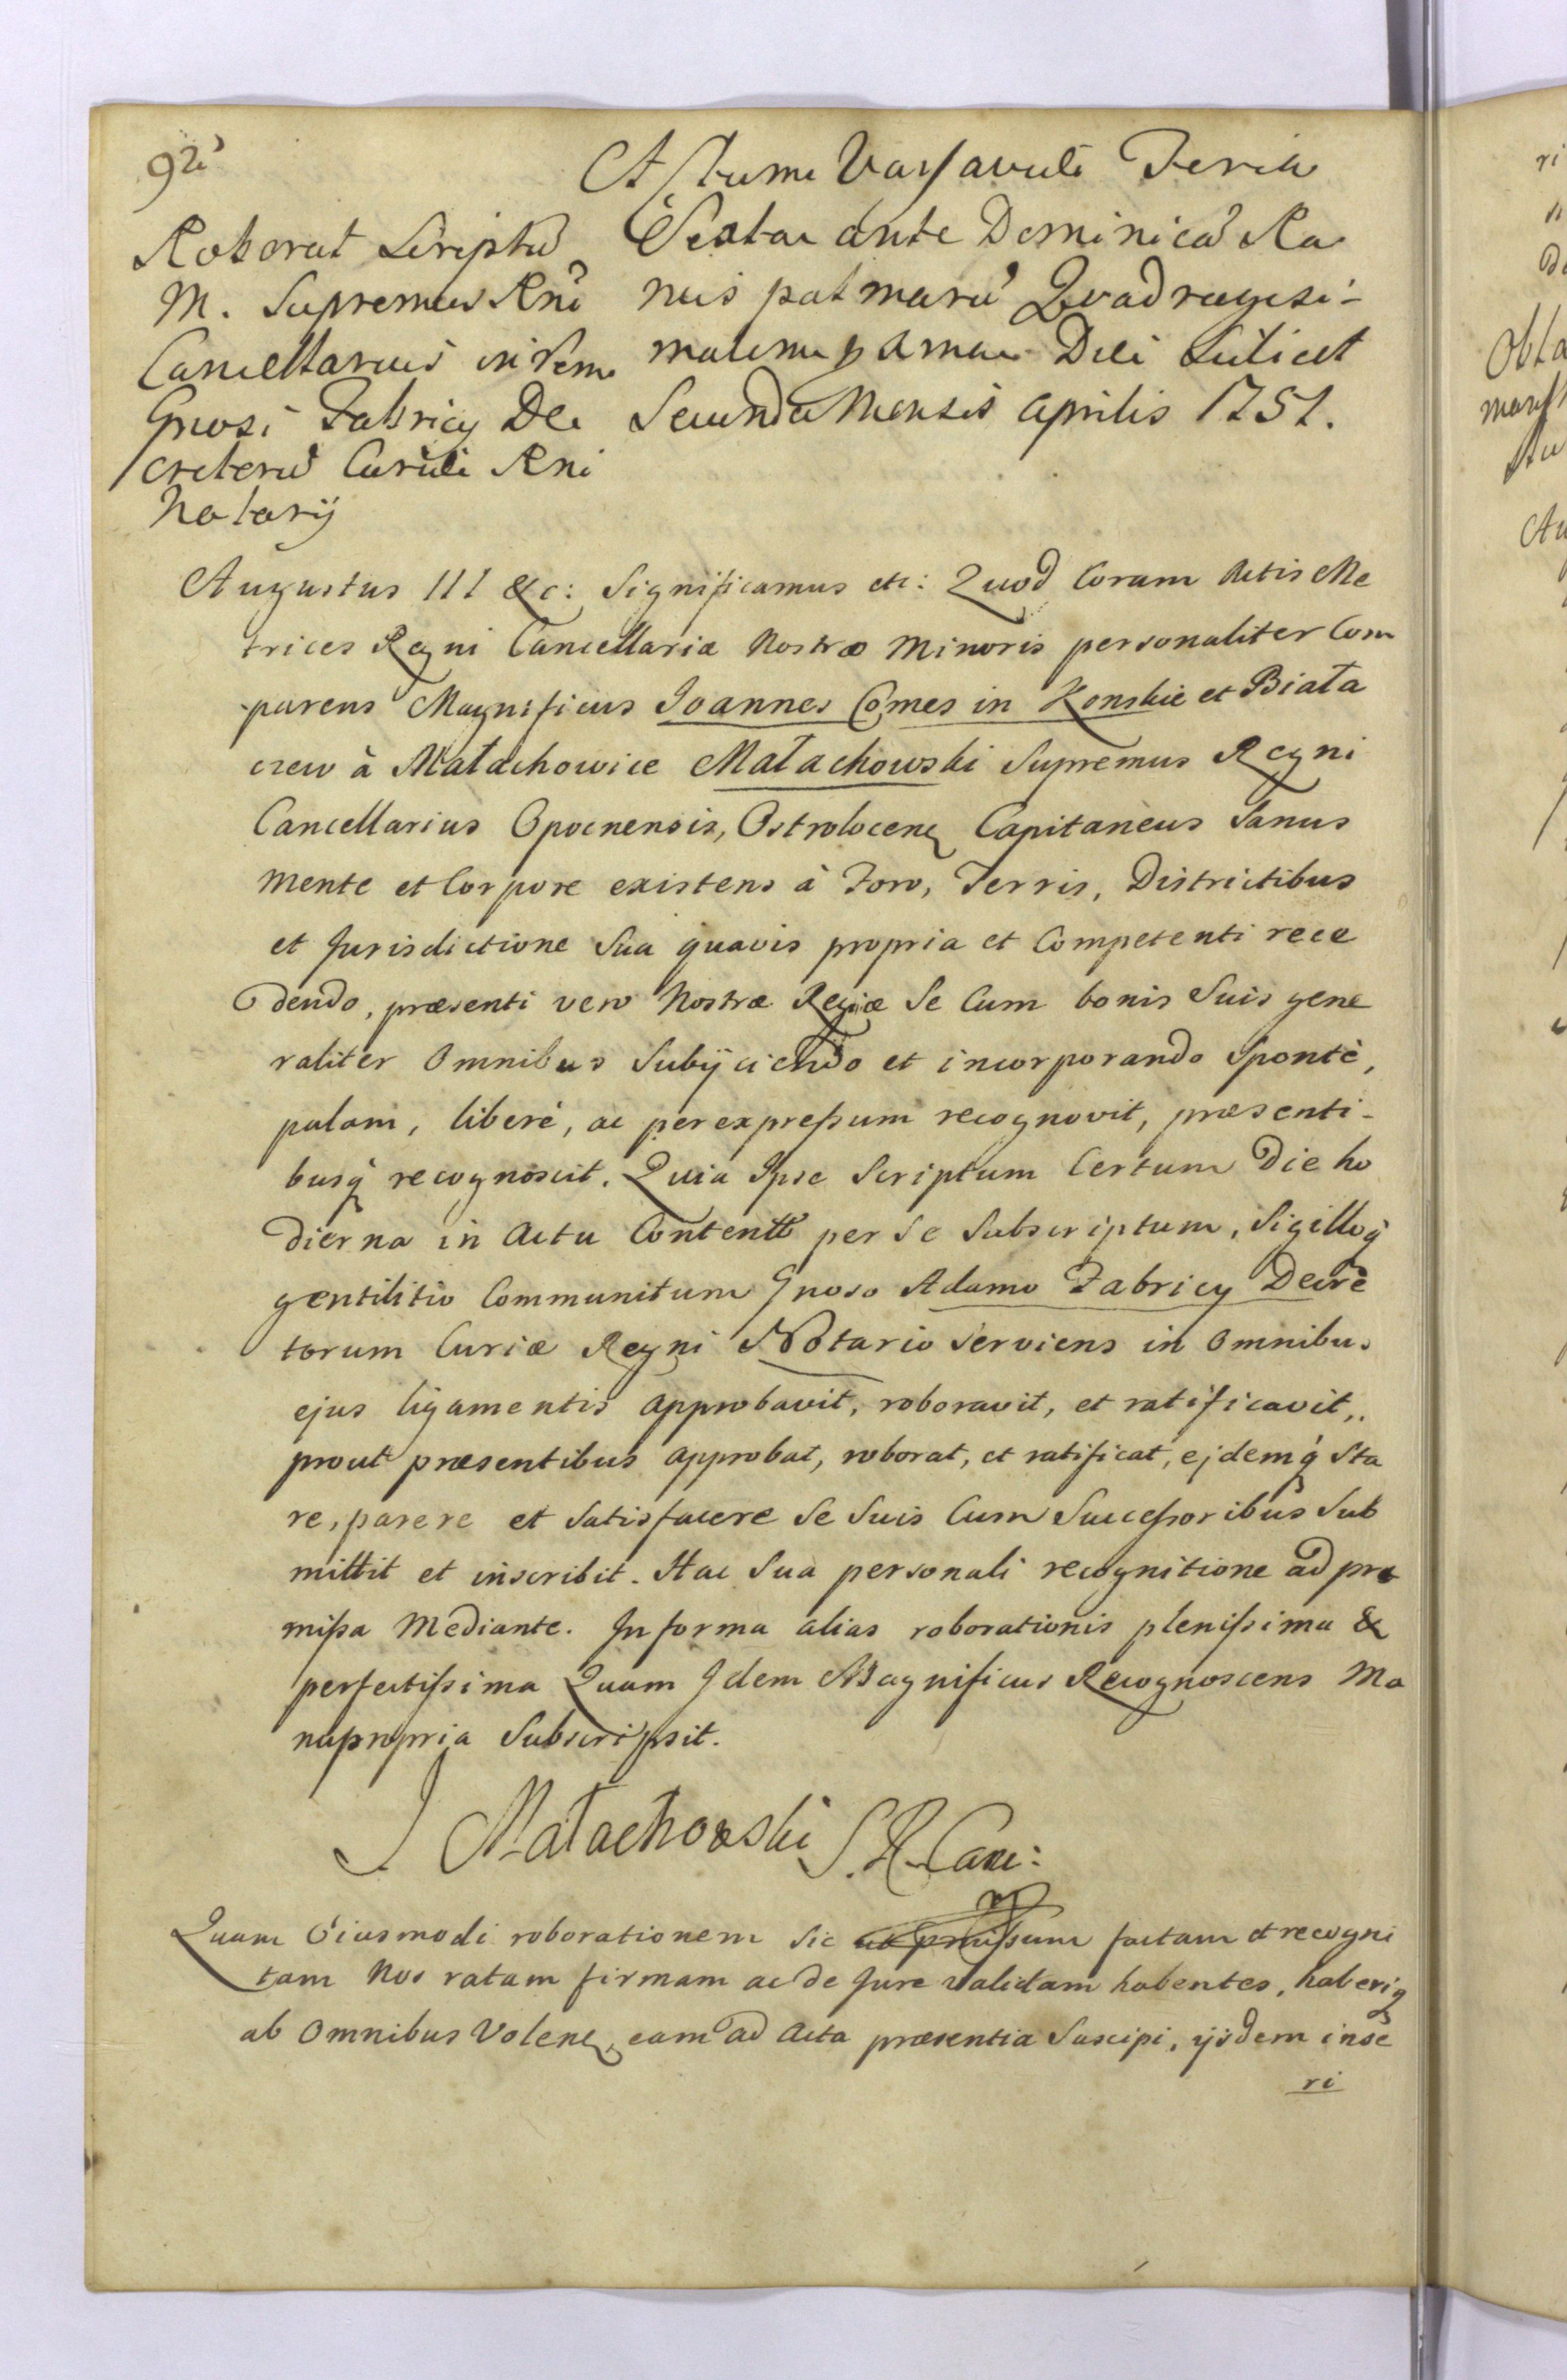 92
Roborat Scriptū
M. Supremus Rni
Cancellarius in rem
Gnosi Fabricy De
cretorū Curiæ Rni
Notarÿ
Actum Varsaviæ Feria
Sexta ante Dominicā Ra
mis palmarū Quadragesi-
malem Die Scilicet
Secunda Mensis Aprilis 1751.
Augustus III &c: Significamus etc: Quod Coram Actis Me
trices Regni Cancellariæ Nostræ Minoris personaliter Com
parens Magnificus Joannes Comes in Konskie et Biała
czew à Małachowice Małachowski Supremus Regni
Cancellarius Opocnensis, Ostrolocenq Capitaneus Sanus
mente et Corpore existens à Foro, Terris, Districtibus
et Jurisdictione Sua quavis propria et Competenti rece
dendo, præsenti vero Nostræ Regiæ Se Cum bonis Suis gene
raliter Omnibus Subÿciendo et incorporando Spontè,
palam, liberè, ac per expreßum recognovit, præsenti-
busq recognoscit. Quia Ipse Scriptum Certum Die ho
dierna in Actu Contentū per Se Subscriptum, Sigilloq
gentilitio Communitum Gnoso Adamo Fabricy Decre
torum Curiæ Regni Notario Serviens in Omnibus
ejus ligamentis approbavit, roboravit, et ratificavit,
prout præsentibus approbat, roborat, et ratificat, ejdemq Sta
re, parere et Satisfacere Se Suis Cum Succeßoribus Sub
mittit et inscribit. Hac Sua personali recognitione ad præ
mißa Mediante. In forma alias roborationis plenißima &
perfectißima Quam Idem Magnificus Recognoscens Ma
nupropria Subscripsit.
J Małachowski S. R. Canc:
Quam Eiusmodi roborationem sic factam et recogni
tam Nos ratam firmam ac de Jure validam habentes, haberiq
ab Omnibus Volenq, eam ad Acta præsentia Suscipi, ijsdem inse
ri